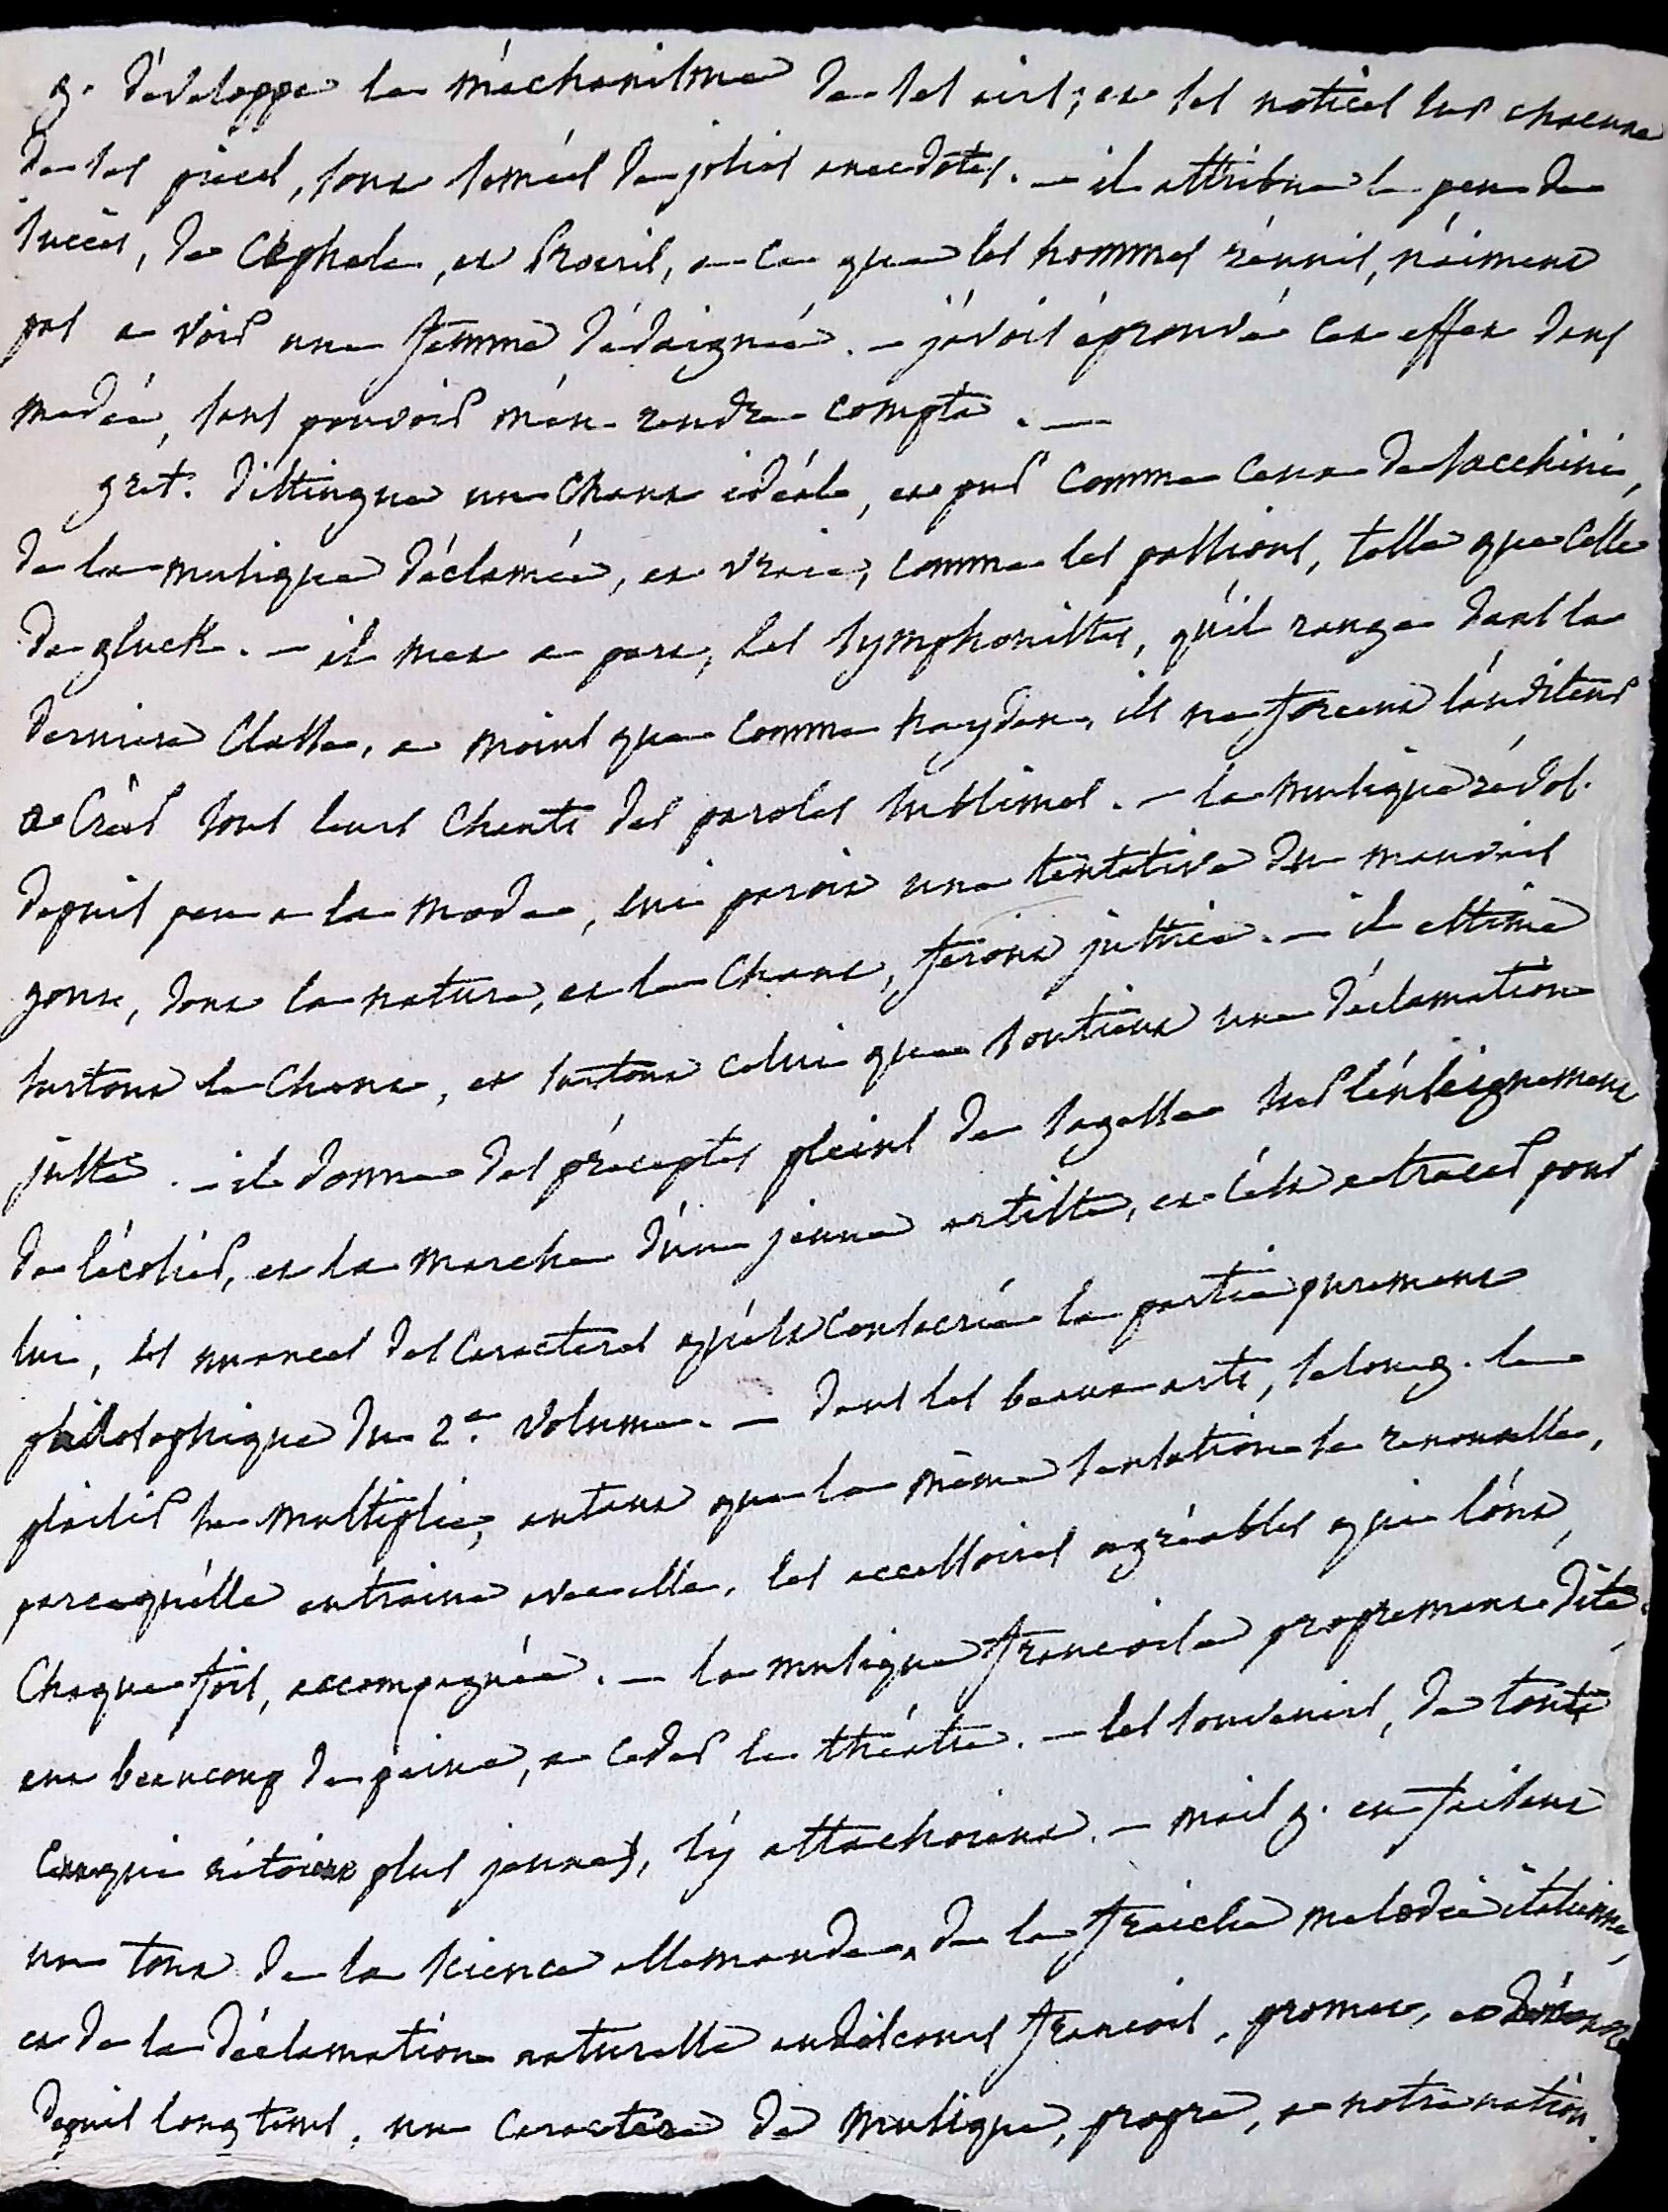 g. développe le méchanisme de ses airs; et ses notices sur chacune
de ses pieces, sont semées de jolies anecdotes. — il attribue le peu de
succès, de Céphale, et Procris, a ce que les hommes réunis, n'aiment
pas a voir une femme dédaignée. — j'avois éprouvé cet effet dans
medée, sans pouvoir m'en rendre compte. —
grét. distingue un chant idéale, et pur comme celui de Sacchini,
de la musique déclamée, et vraie, comme les passions, telle que celle
de gluck. — il met a part, les symphonistes, qu'il range dans la
derniere classe, a moins que comme haydn, ils ne forcent l'auditeur
a créer sous leurs chants des paroles sublimes. — la musique révol.
depuis peu a la mode, lui paroit une tentative du mauvais
gout, dont la nature, et le chant, feront justice. — il estime
surtout le chant, et surtout celui que soutient une déclamation
juste. — il donne des préceptes pleins de sagesse sur l'enseignement
de l'écolier, et la marche d'un jeune artiste, et c'est a tracer pour
lui, les nuances des caracteres qu'est consacrée la partie purement
philosophique du 2e. volume. — dans les beaux arts, selon g. le
plaisir se multiplie, autant que la même sensation se renouvelle,
parcequ'elle entraine avec elle, les accessoires agréables qui l'ont,
chaque fois, accompagnée. — la musique francoise proprement dite,
eut beaucoup de peine, a ceder le théatre. — les souvenirs, de touts
ceux qui n'étoient plus jeunes, s'y attachoient. — mais g. en faisant
un tout de la science allemande, de la fraiche melodie italienne,
et de la déclamation naturelle au discours francois, promet, et donne
depuis long tems, un caractere de musique, propre, a notre nation.